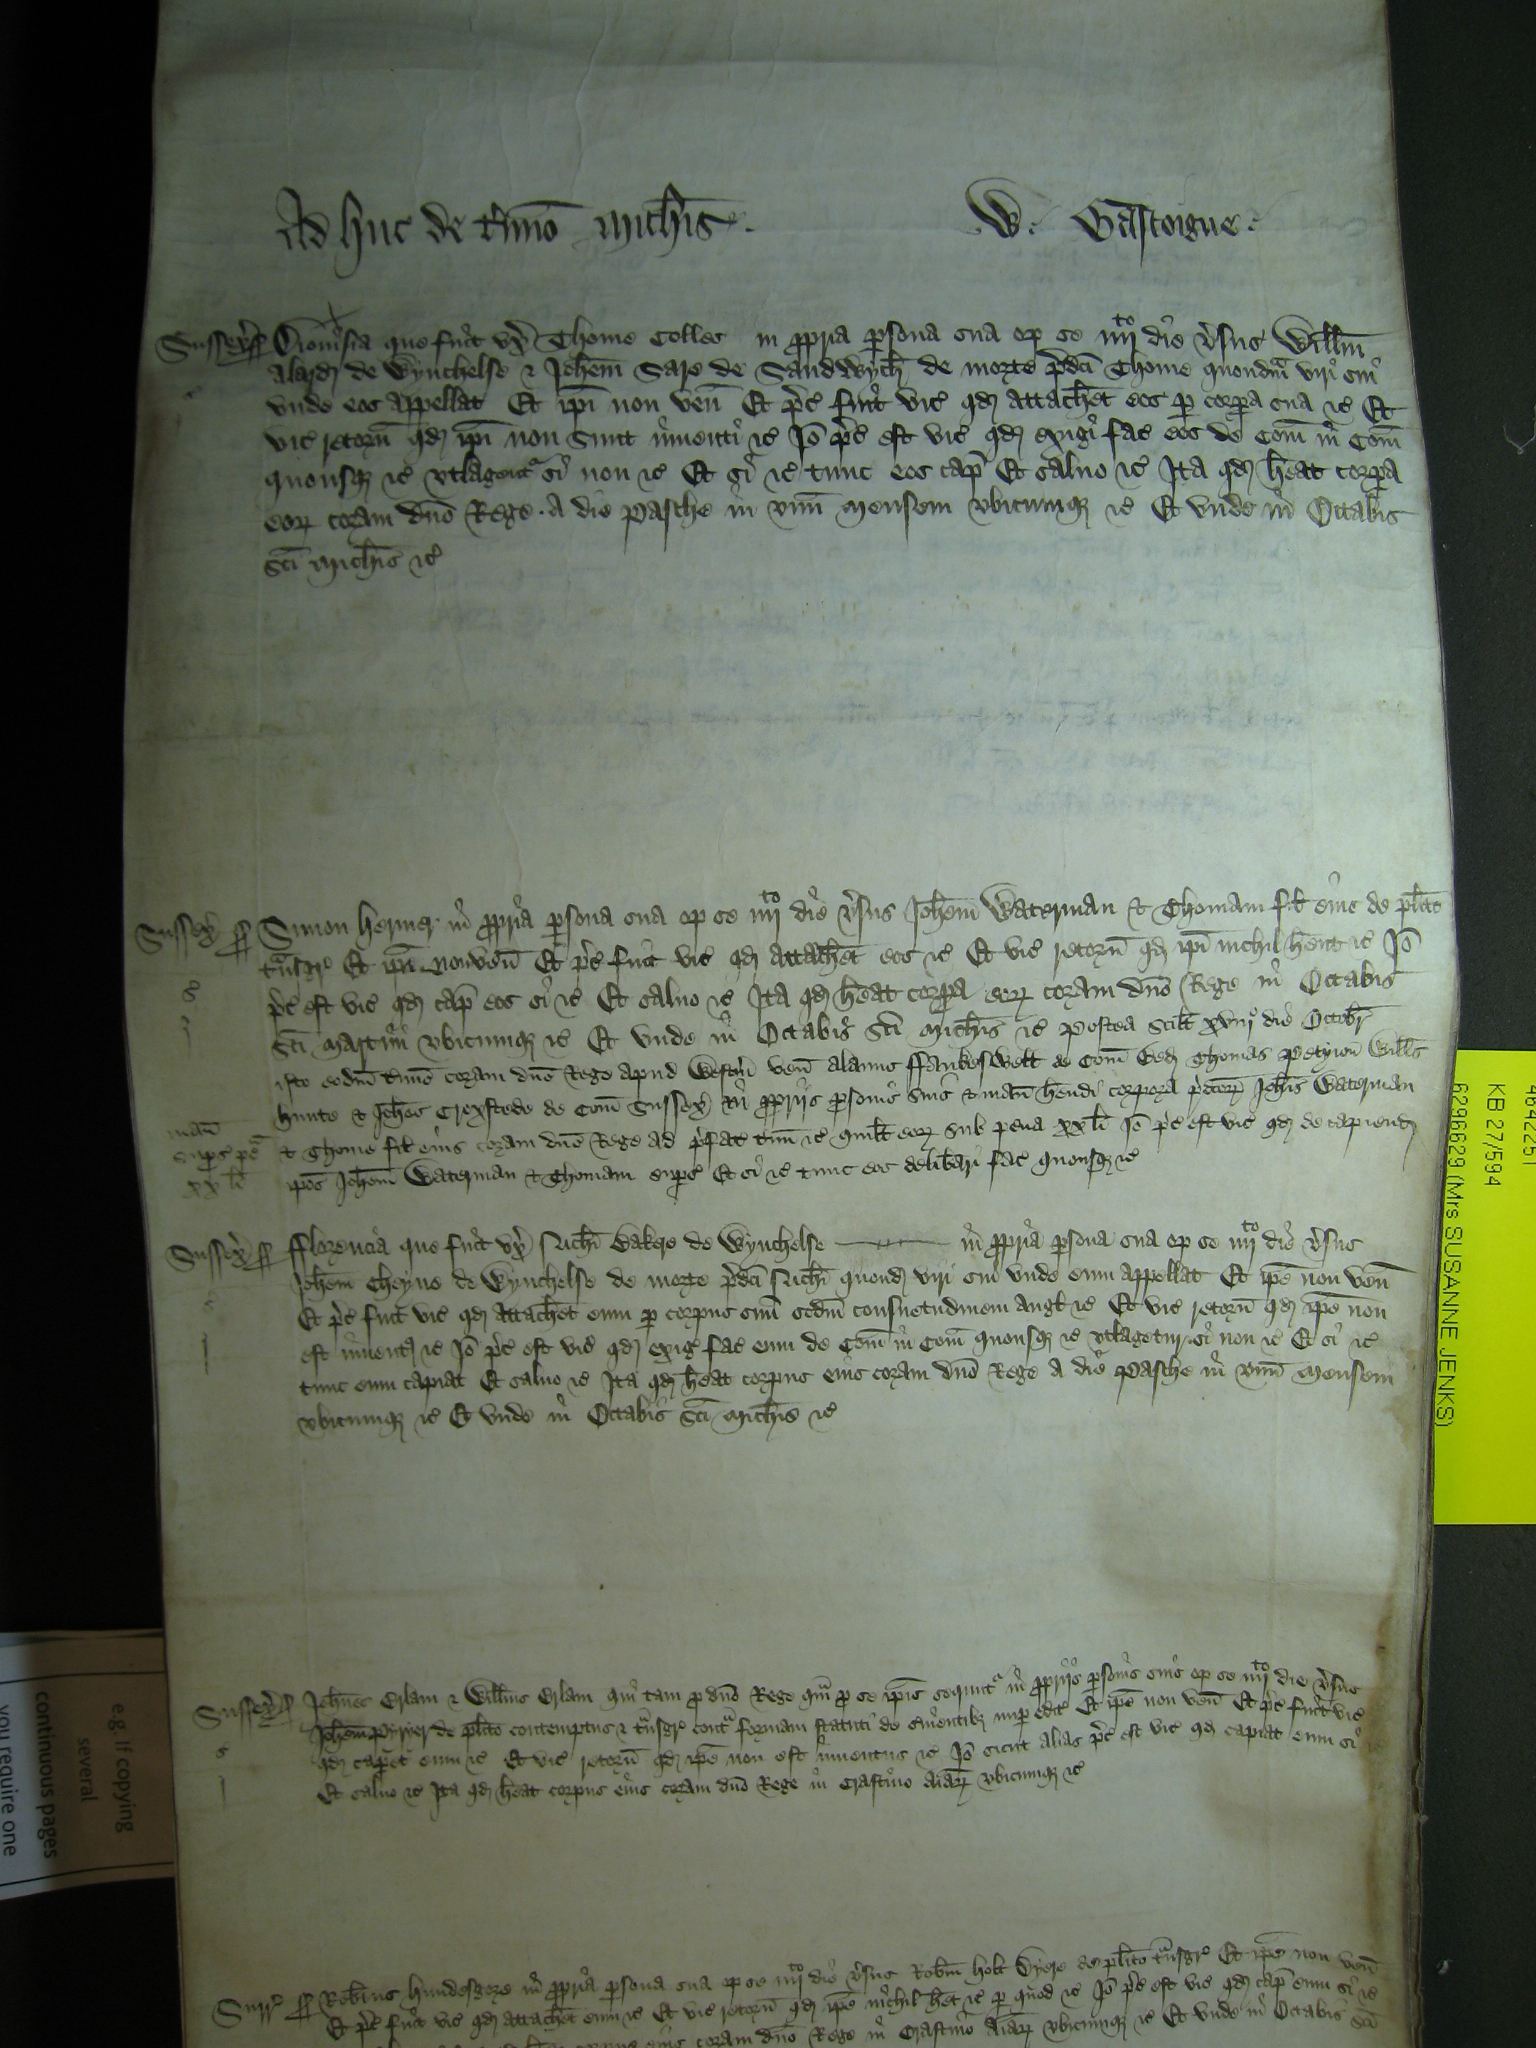 Ad huc de t'mino Mich'is W. Gascoigne
Sussex' ss Dionisia que fuit ux' Thome Colles in p'pria p'sona sua op se iiijto die v'sus Will'm
Alard de Wynchelse & Joh'em Sare de Sandwych de morte p'd'ci Thome quondam viri sui
vnde eos appellat Et ip'i non ven' Et p'c' fuit vic' q'd attach' et eos p' corp'a sua &c' Et
vic' retorn' q'd ip'i non sunt inuenti &c' Jo' p'c' est vic' q'd exigi fac' eos de Com' in Com'
quousq' &c' vtlagent' si non &c' Et si &c' tunc eos cap' Et saluo &c' Ita q'd h'eat corp'a
eor' coram d'no Rege A die Pasche in vnu' mensem vbicumq' &c' Et vnde in Octabis
sc'i Mich'is &c'
Sussex' ss Simon Hermer in p'pria p'sona sua op se iiijto die v'sus Joh'em Waterman & Thomam fil' eius de pl'ito
t'nsgr' Et ip'i non ven' Et p'c' fuit vic' q'd attach'et eos &c' Et vic' retorn' q'd ip'i nichil h'ent &c' Jo'
p'c' est vic' q'd cap' eos si &c' Et saluo &c' Ita q'd h'eat corp'a eor' coram d'no Rege in Octabis
sc'i Martini vbicumq' &c' Et vnde in Octabis sc'i Mich'is &c' Postea scil't xviijo die Octobr'
isto eodem t'mino coram d'no Rege apud Westm' ven' Alanus de Com' Thomas Petyron Will's
Hunte & Joh'es Crexstede de Com' Sussex' in p'priis p'sonis suis & man' h'endi corpora p'd'cor' Joh'is Waterman
man' & Thome fil' eius coram d'no Rege ad p'fat' t'm' &c' quil't eor' sub pena xx li' Jo' p'c' est vic' q'd de capiend'
sup's' pe' ip'os Joh'em Waterman & Thomam sup's' Et si &c' tunc eos delib'ari fac' quousq' &c'
xx li'
Sussex' ss Florencia que fuit ux' Mich'i Baker de Wynchelse in p'pria p'sona sua op se iiijto die v'sus
Joh'em Cheyne de Wynchelse de morte p'd'ci Mich'i quond' viri sui vnde eum appellat Et ip'e non ven'
Et p'c' fuit vic' q'd attach'et eum p' corpus suu' scdm consuetudinem Angl' &c' Et vic' retorn' q'd ip'e non
est inuent' &c' Jo' p'c' est vic' q'd exig' fac' eum de Com' in Com' quousq' &c' vtlagetur si non &c' Et si &c'
tunc eum capiat Et saluo &c' Ita q'd h'eat corpus eius coram d'no Rege A die Pasche in vnu' mensem
vbicumq' &c' Et vnde in Octabis sc'i Mich'is &c'
Sussex' ss Joh'nes Erlam & Will'ms Erlam qui tam p' d'no Rege q'm p' se ip'is sequit' in p'priis p'sonis suis op se iiijto die v'sus
Joh'em de pl'ito contemptus & t'nsgr' cont' formam statuti de s'uientib' nup' edit' Et ip'e non ven' Et p'c' fuit vic'
q'd cap'et eum &c' Et vic' retorn' q'd ip'e non est inuentus &c' Jo' sicut alias p'c' est vic' q'd capiat eum si &c'
Et saluo &c' Ita q'd h'eat corpus eius coram d'no Rege in Crastino Ai'ar' vbicumq' &c'
Surr' ss Rob'tus Hundesgore in p'pria p'sona sua op se iiijto die v'sus Rob'm Holt Dyere de pl'ito t'nsgr' Et ip'e non ven'
Et p'c' fuit vic' q'd attach'et eum &c' Et vic' retorn' q'd ip'e nichil h'et &c' p' quod &c' Jo' p'c' est vic' q'd cap' eum si &c'
corpus eius coram d'no Rege in Crastino Ai'ar' vbicumq' &c' Et vnde in Octabis sc'i
4842251
KB 27/594
6296629 (Mrs SUSANNE JENKS)
e.g. If copying
several
continuous pages
you require one